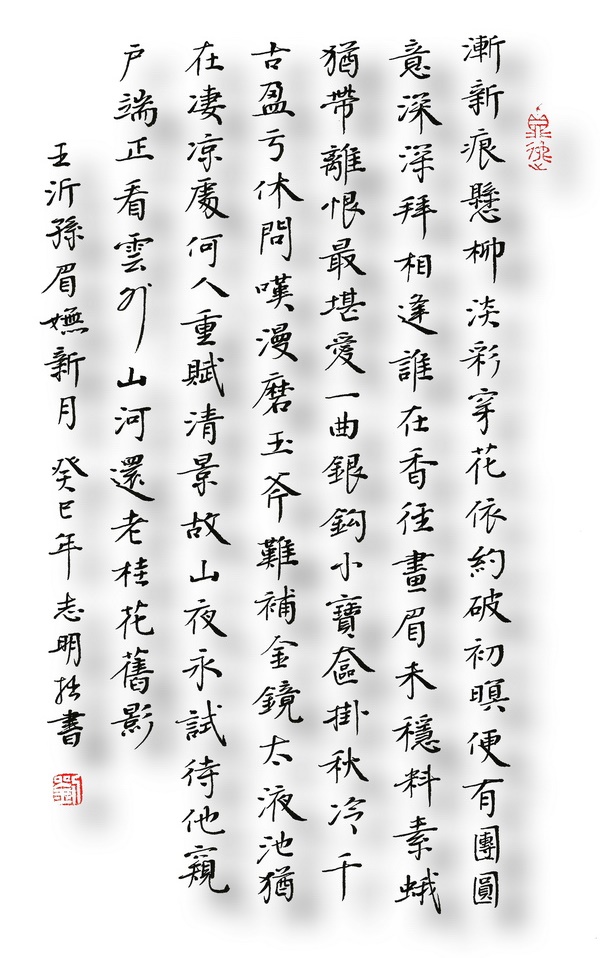 漸新痕懸柳淡彩穿花依約破初暝便有團圓
意深深拜相逢誰在香徑畫眉未穩料素蛾
猶帶離恨最堪愛一曲銀鈎小寶奩掛秋冷千
古盈亏休問嘆漫磨玉斧難補金鏡太液池猶
在淒涼處何人重賦清景故山夜永試待他窺
戶端正看雲外山河還老桂花舊影
王沂孫眉嫵新月 癸巳年志明拙書